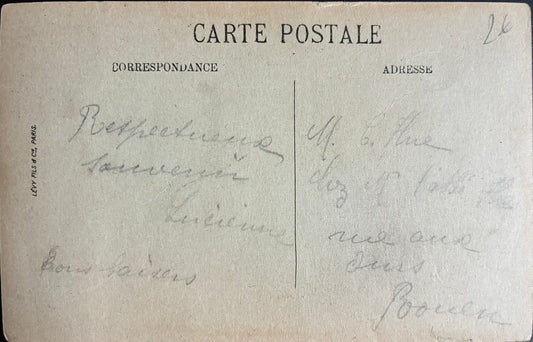 26
CARTE POSTALE
CORRESPONDANCE
ADRESSE
LÉVY FILS & Cie, PARIS.
Respectueux
souvenir
Lucienne
Bons baisers
M. E. Hue
chez Mr
rue aux
Ours
Rouen